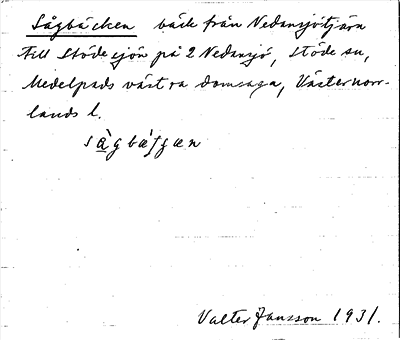 Sågbäcken bäck från Nedansjötjärn
till Stödesjön på 2 Nedansjö, Stöde sn,
Medelpads västra domsaga, Västernorr-
lands l.
Valter Jansson 1931.